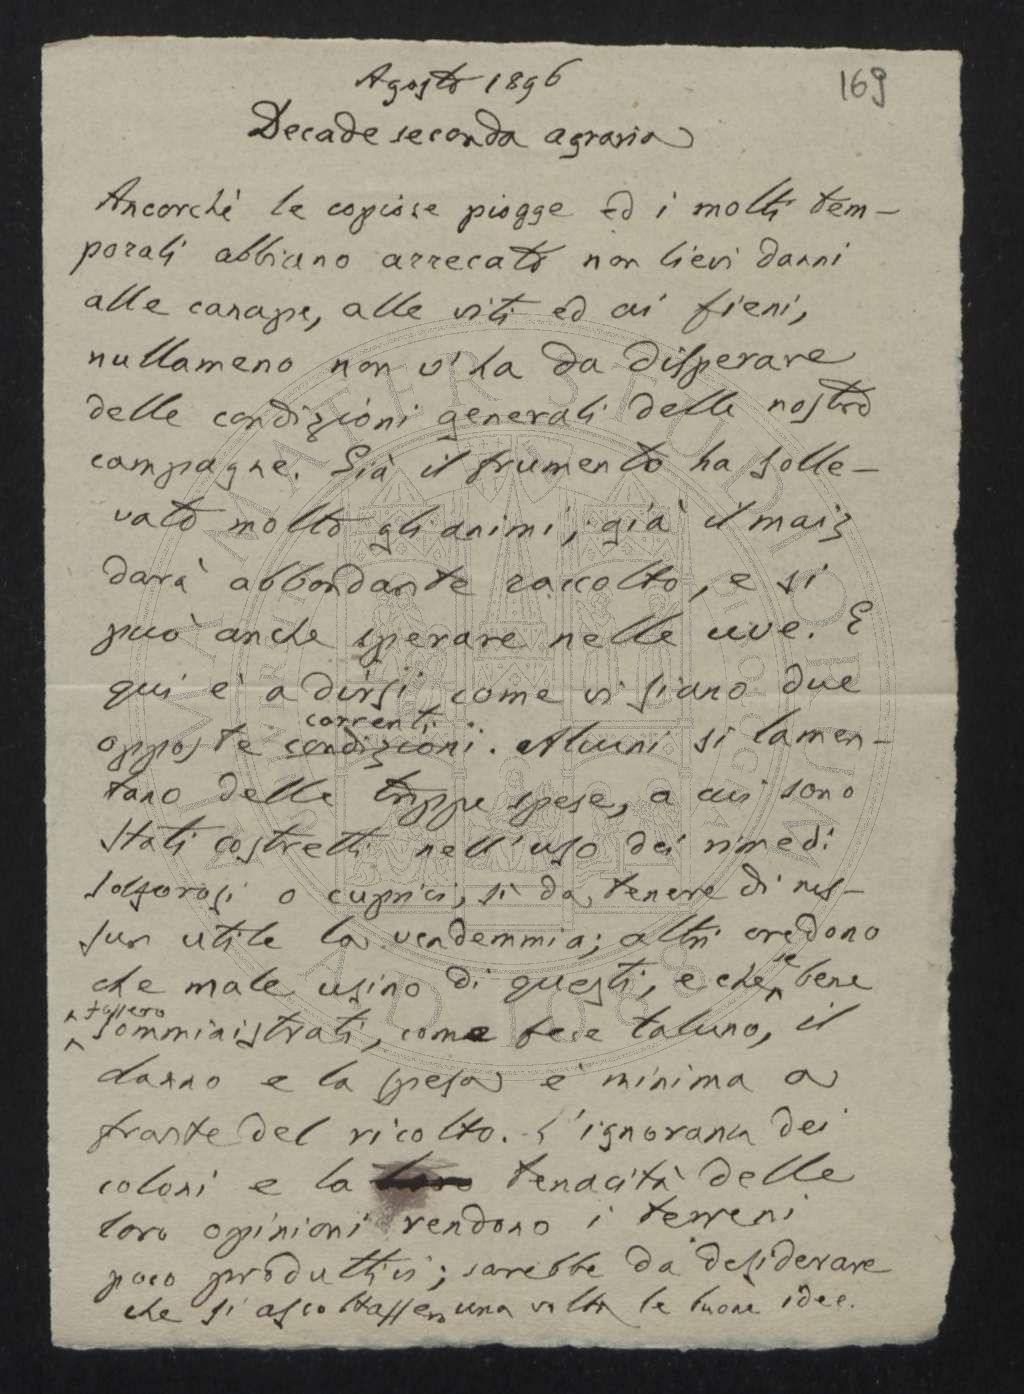 Agosto 1896
169
Decade seconda agraria
Ancorchè le copiose piogge ed i molti tem-
porali abbiano arrecato non lievi danni
alle canape, alle viti ed ai fieni,
nullameno non v'ha da disperare
delle condizioni generali delle nostre
campagne. Già il frumento ha solle-
vato molto gli animi; già il maiz
darà abbondante raccolto, e si
può anche sperare nelle uve. E
qui è a dirsi come vi siano due
correnti
opposte condizioni. Alcuni si lamen-
tano delle troppe spese, a cui sono
stati costretti nell'uso dei rimedi
solforosi o cuprici, sì da tenere di nes-
sun utile la vendemmia; altri credono
che male usino di questi, e che se bene
fossero
somministrati, come fece taluno, il
danno e la spesa è minima a
fronte del ricolto. L'ignoranza dei
coloni e la loro tenacità delle
loro opinioni rendono i terreni
poco produttivi; sarebbe da desiderare
che si ascoltassero una volta le buone idee.